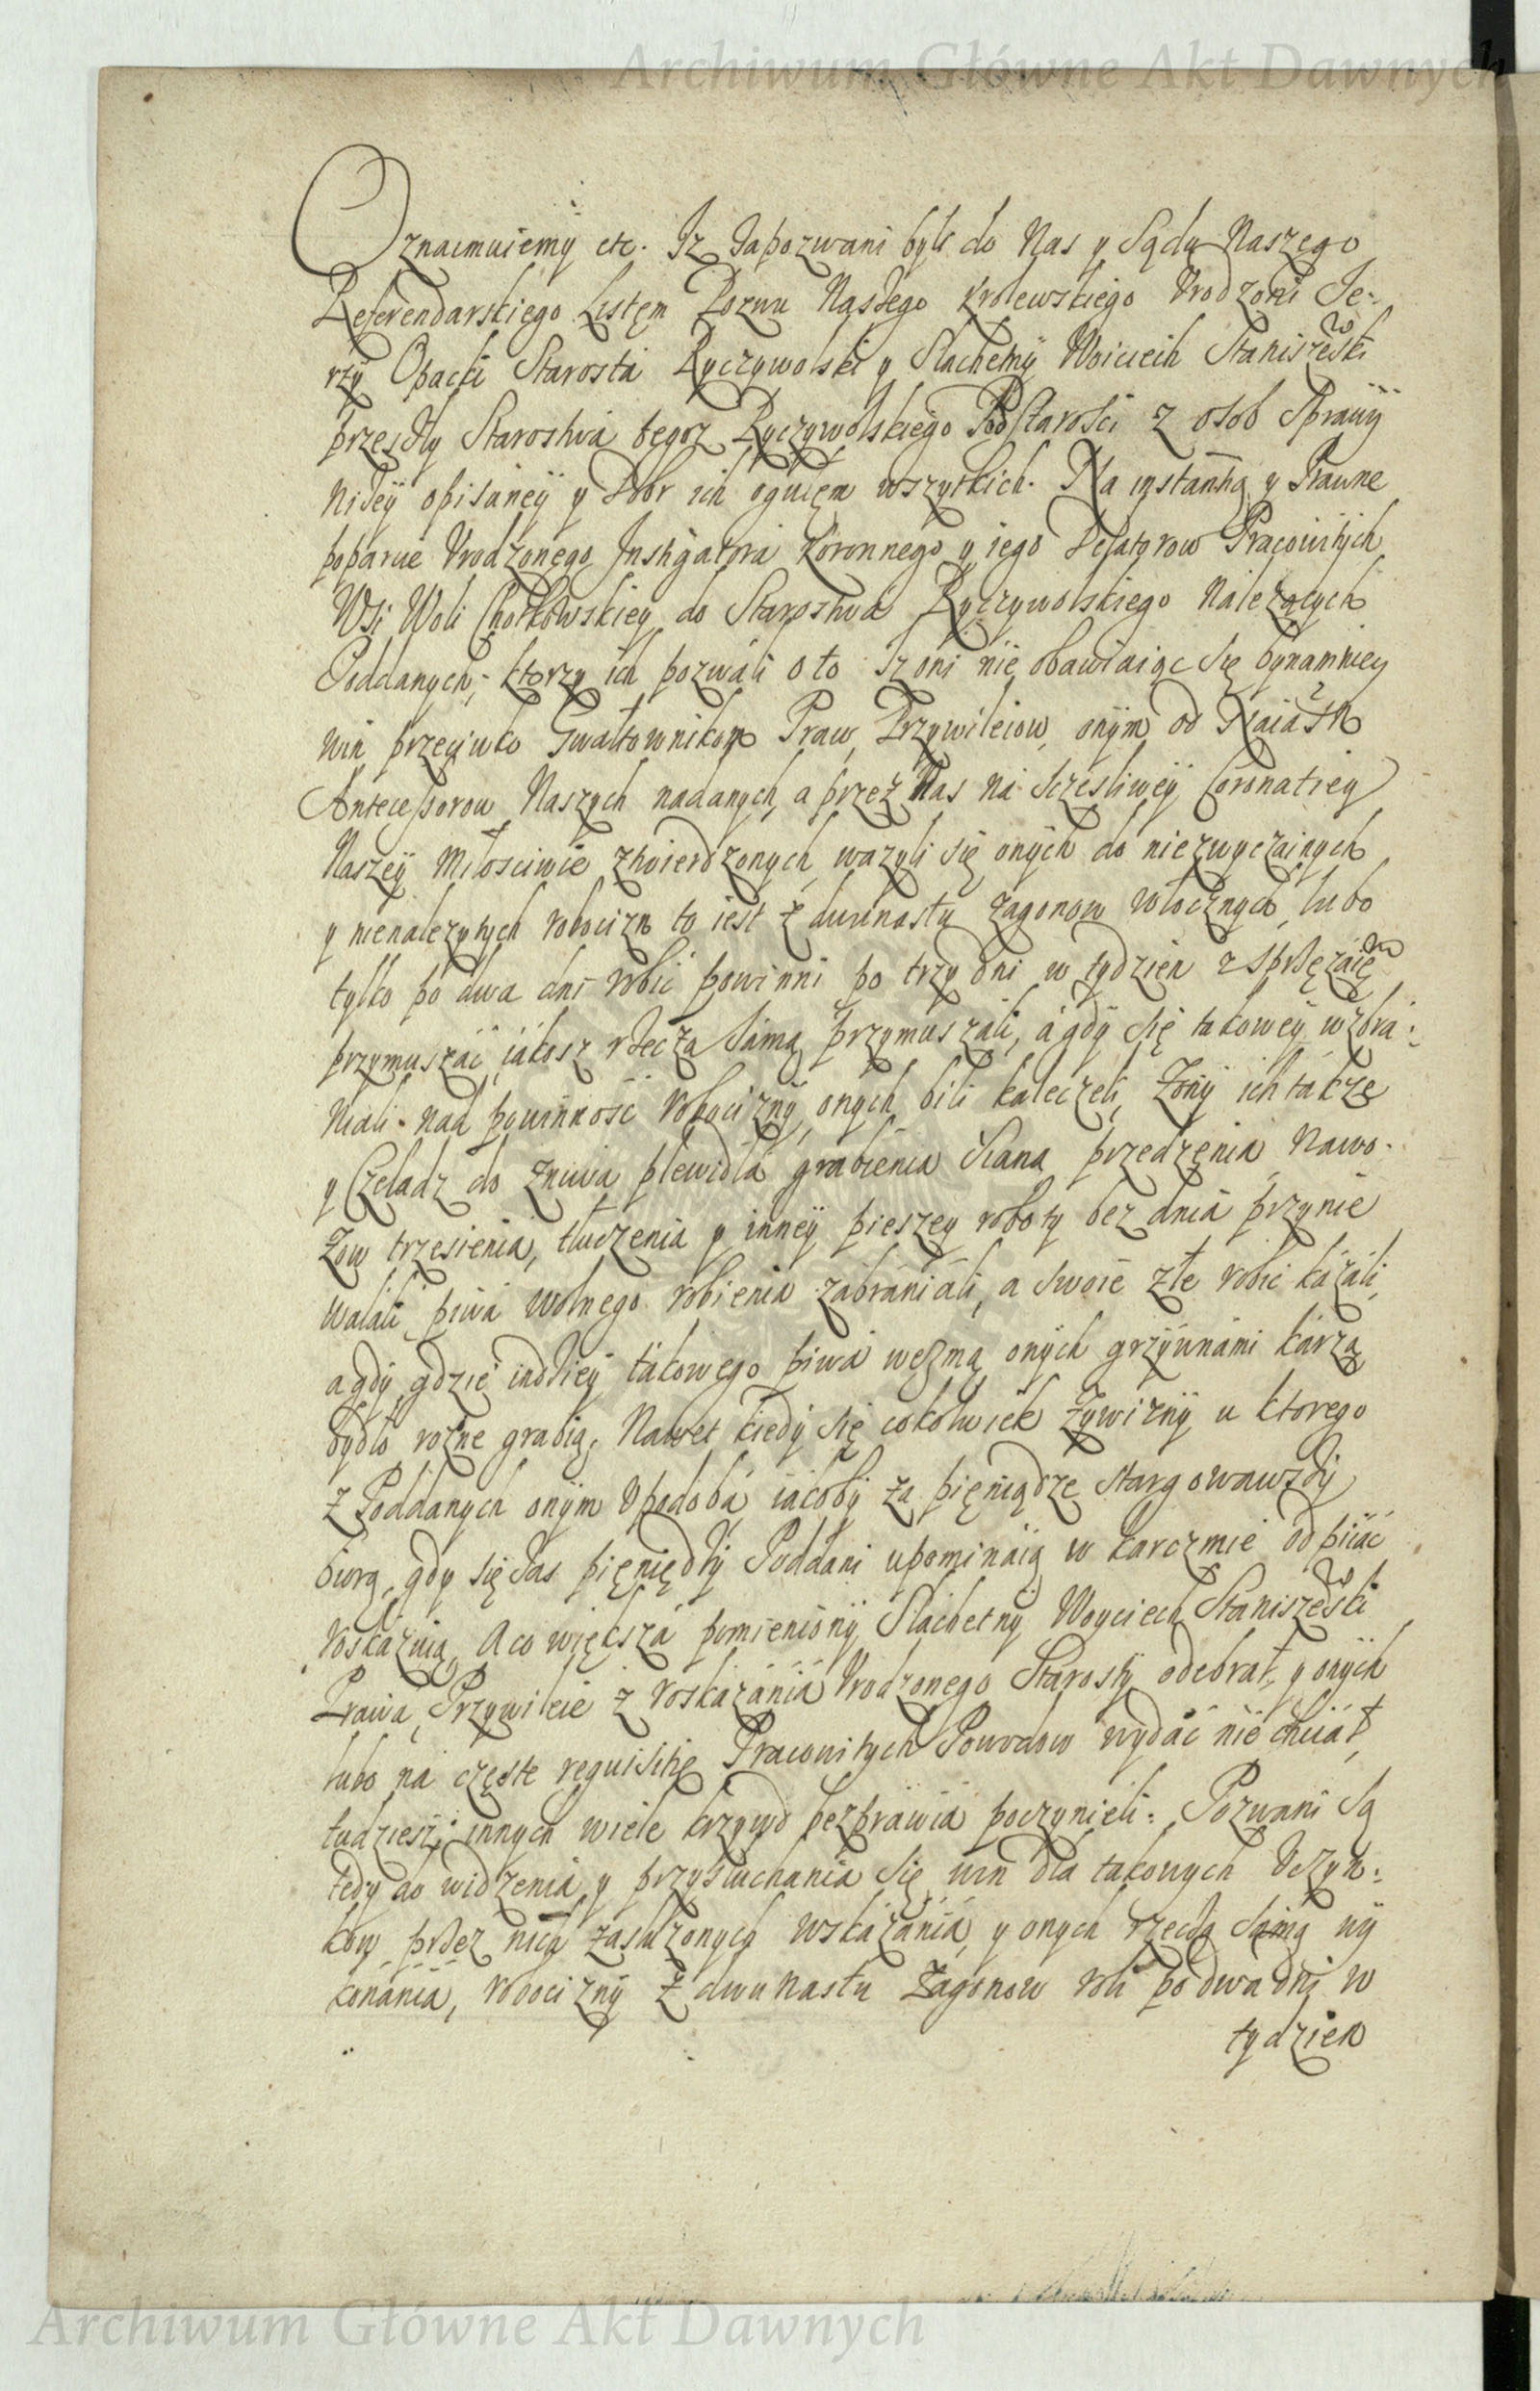 Archiwum Główne Akt Dawnych
Oznaimuiemy etc. Iz Zapozwani byli do Nas y Sądu Naszego
Referendarskiego Listęm Pozwu Naszego Krolewskiego Vrodzoni Je-
rzy Opacki Starosta Ryczywolski y Slachetny Woiciech Staniszewski
przeszły Starostwa tegoz Ryczywolskiego Podstarosci z osob Sprawy
niżey opisaney y Dobr ich ogułęm wszytkich. Na instantią y Prawne
poparcie Vrodzonego Instigatora Koronnego y iego Delatorow Pracowitych
Wsi Woli Chotkowskiey do Starostwa Ryczywolskiego Nalezących
Poddanych, ktorzy ich pozwali o to Iz oni nie obawiaiąc się bynamniey
win przeciwko Gwałtownikom Praw, Przywileiow, onym od Naiaśn
Antecessorow Naszych nadanych, a przez Nas na Sczesliwey Coronatiey
Naszey Miłosciwie ztwierdzonych, wazyli się onych do niezwyczainych
y nienalezytych robocizn to iest z dwunastu zagonow włocznych, lubo
tylko po dwa dni robić powinni po trzy dni w tydzien z sprzęzaięm
przymuszać, iakosz rzeczą Samą przymuszali, a gdy się takowey wzbra-
niali nad powinność robocizny, onych bili kaleczeli, Zony ich takze
y Czeladz do zniwa plewidła grabienia Siana przedzenia Nawo-
zow trzesienia, tłuczenia y inney pieszey roboty bez dnia przynie
walali, piwa wolnego robienia zabraniali, a swoie złe robić kazali,
a gdy gdzie indziey takowego piwa wezmą onych grzywnami karzą
bydło rozne grabią, Nawet kiedy się cokolwiek Zywizny u ktorego
z Poddanych onym Vpodoba, iakoby za pięniądze stargowawszy
biorą, gdy się zas pięniędzy Poddani upominaią w karczmie odpiiać
roskazuią, A co większa pomieniony Slachetny Woyciech Staniszewski
Prawa, Przywileie z roskazania Vrodzonego Starosty odebrał, y onych
lubo na częste requisitię Pracowitych Powodow wydać nie chciał,
tudziesz innych wiele krzywd bezprawia poczynieli: Pozwani Są
tedy do widzenia y przysłuchania się win dla takowych Vczyn-
kow przez nich zasłuzonych wskazania, y onych rzeczą Samą wy
konania, robocizny z dwunastu Zagonow roli po dwa dni w
tydzien
Archiwum Główne Akt Dawnych